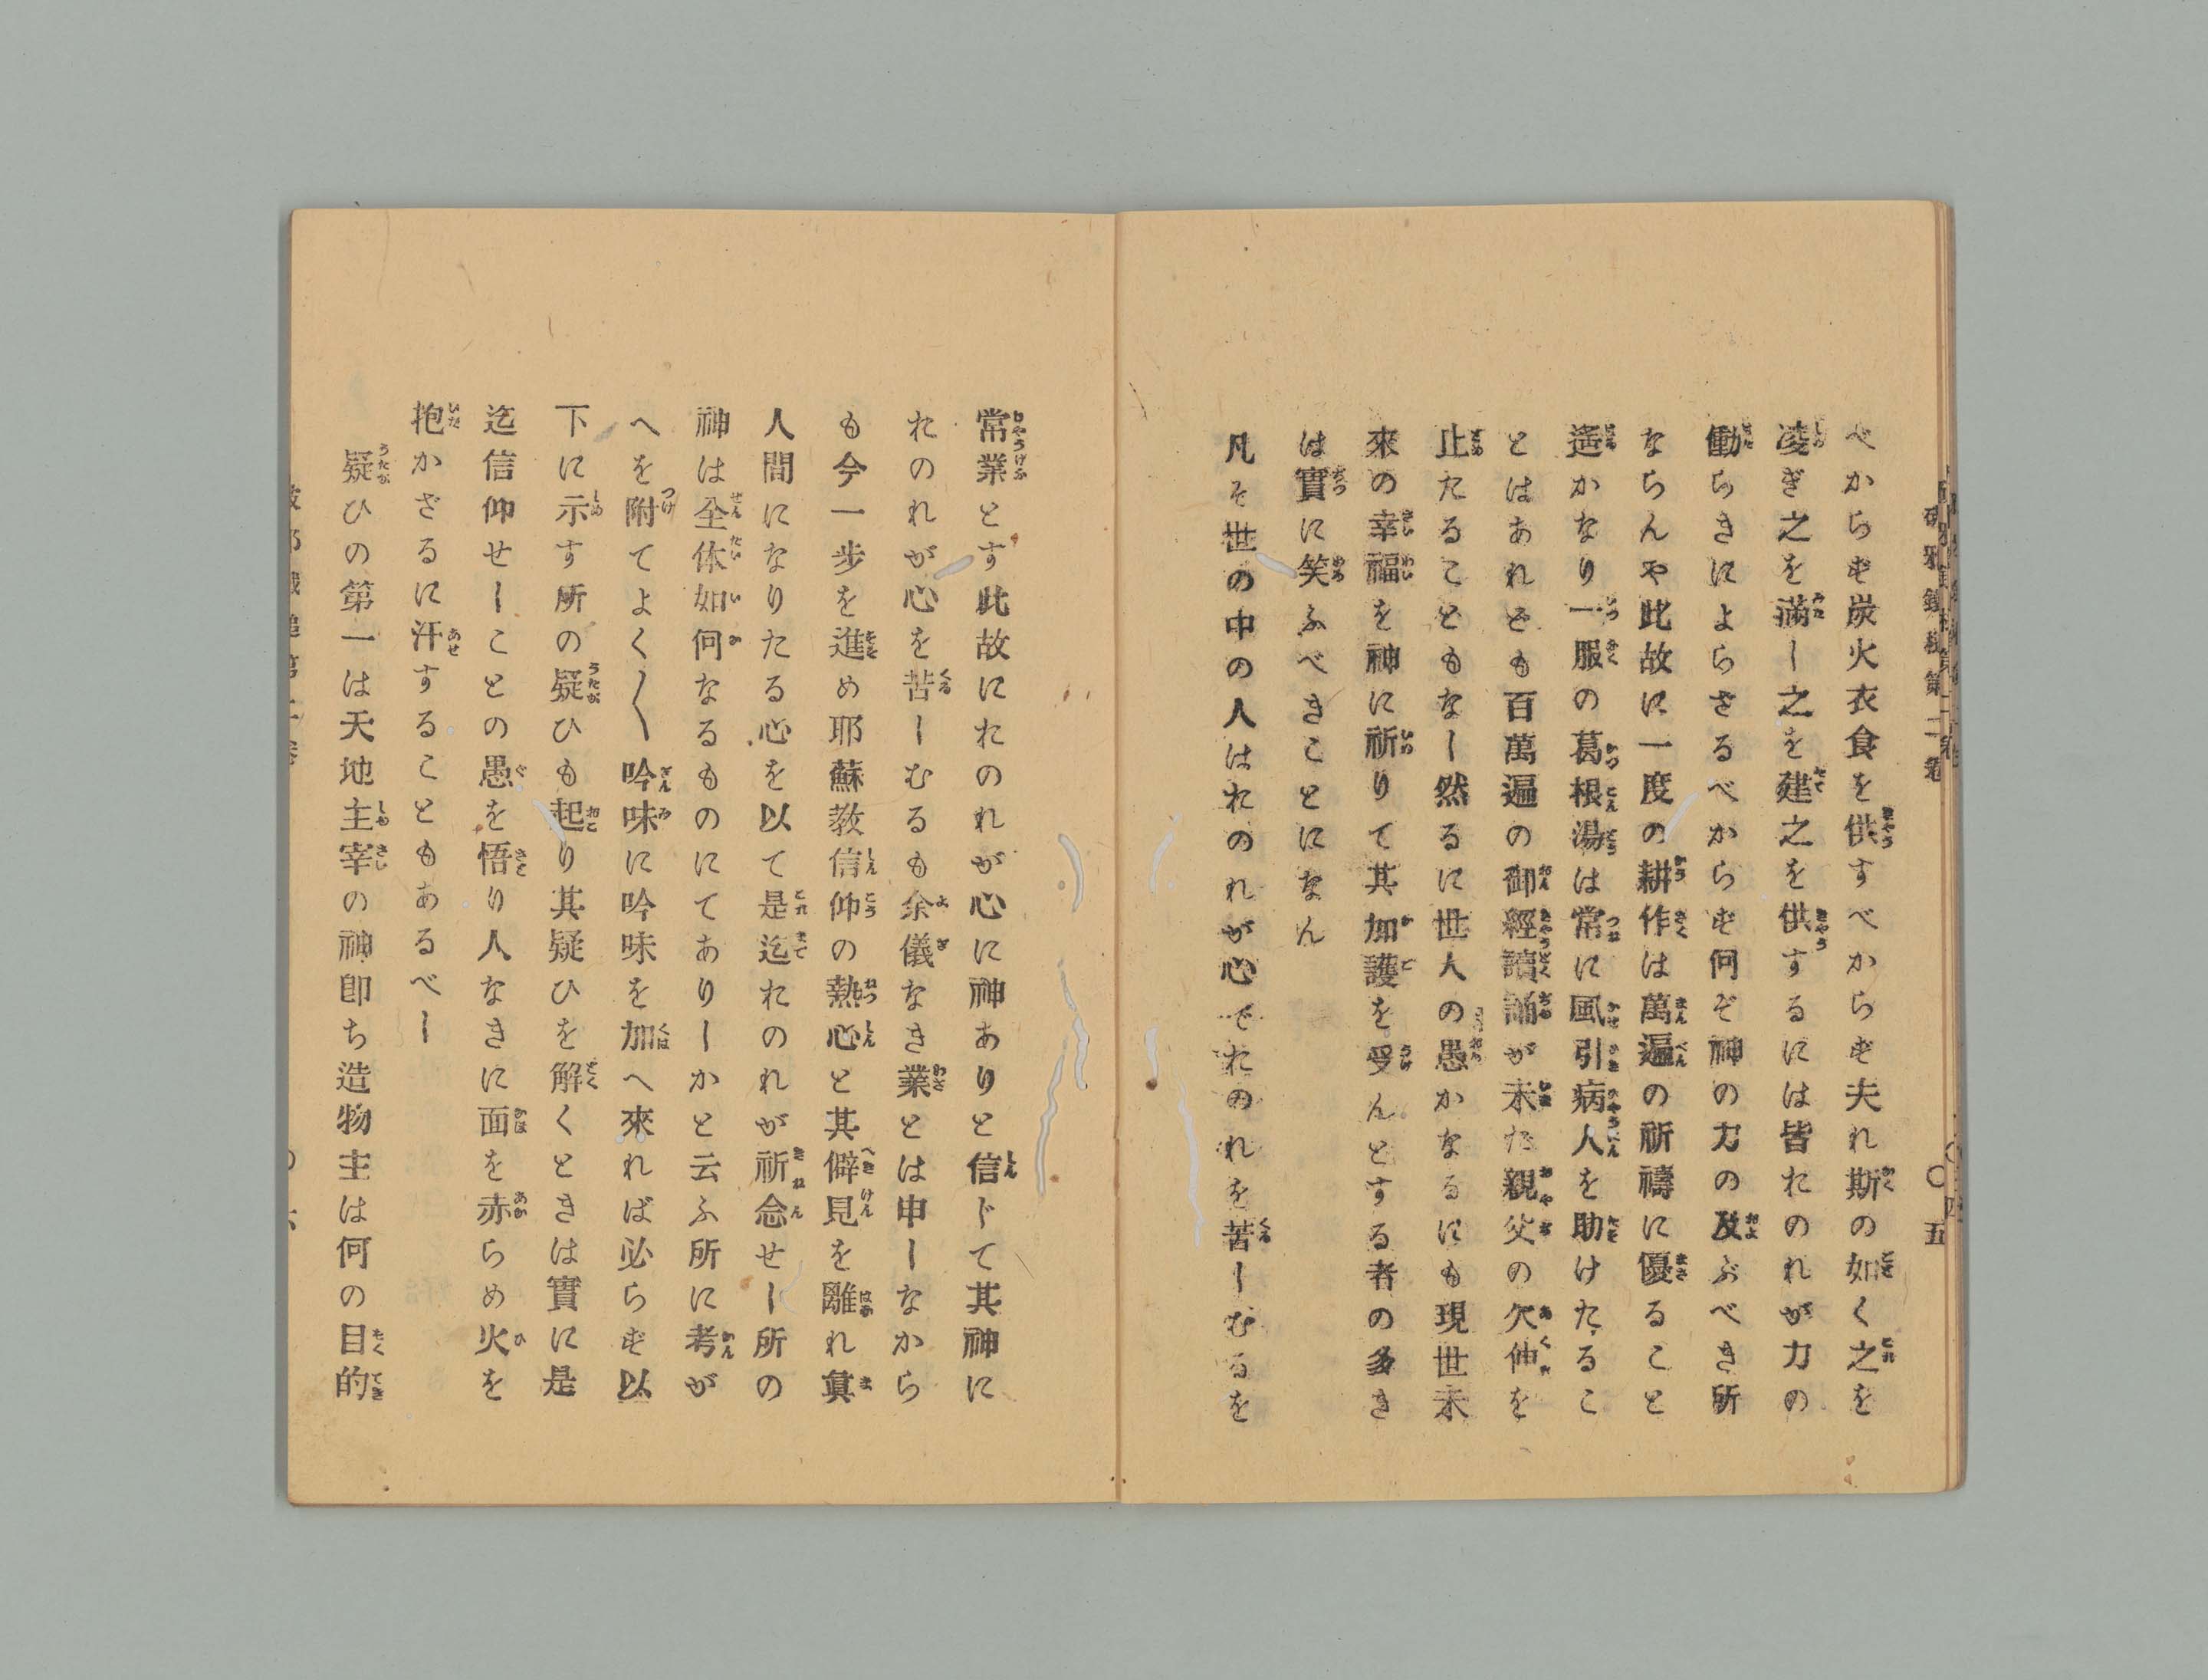 べからず炭火衣食を供すべからず夫れ斯の如く之を
凌ぎ之を滿し之を建之を供するには皆れのれが力の
働らきによらざるべからず何ぞ神の力の及ぶべき所
ならんや此故に一度の耕作は萬遍の祈禱に優ること
遙かなり一服の葛根湯は常に風引病人を助けたるこ
とはあれども百萬遍の御經讀誦が未た親父の欠伸を
止たることもなし然るに世人の愚かなるにも現世未
來の幸福を神に祈りて其加護を受んとする者の多き
は實に笑ふべきことになん
凡そ世の中の人はれのれが心でれのれを苦しむるを
常業とす此故にれのれが心に神ありと信じて其神に
れのれが心を苦しむるも余儀なき業とは申しなから
も今一步を進め耶蘇敎信仰の熱心と其僻見を離れ眞
人間になりたる心を以て是迄れのれが祈念せし所の
神は全体如何なるものにてありしかと云ふ所に考が
へを附てよく〱吟味に吟味を加へ來れば必らず以
下に示す所の疑ひも起り其疑ひを解くときは實に是
迄信仰せしことの愚を悟り人なきに面を赤らめ火を
抱かざるに汗することもあるべし
疑ひの第一は天地主宰の神卽ち造物主は何の目的